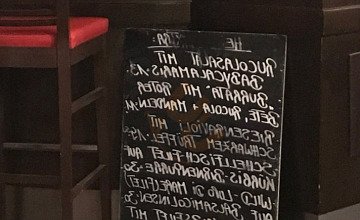 RUCOLASALAT MIT
BABYCALAMARIS 13.-
BURRATA MIT ROTER
BETE, RUCOLA + MANDELN 14.-
RIESENRAVIOLI MIT
SCHWARZEM TRÜFFEL 19.-
SCHELLFISCHFILET AUF
KÜRBIS-BIRNENPÜREE 30.-
WILD LUND DI HAMELFILET
BALSAMICOLINSEN
MIT